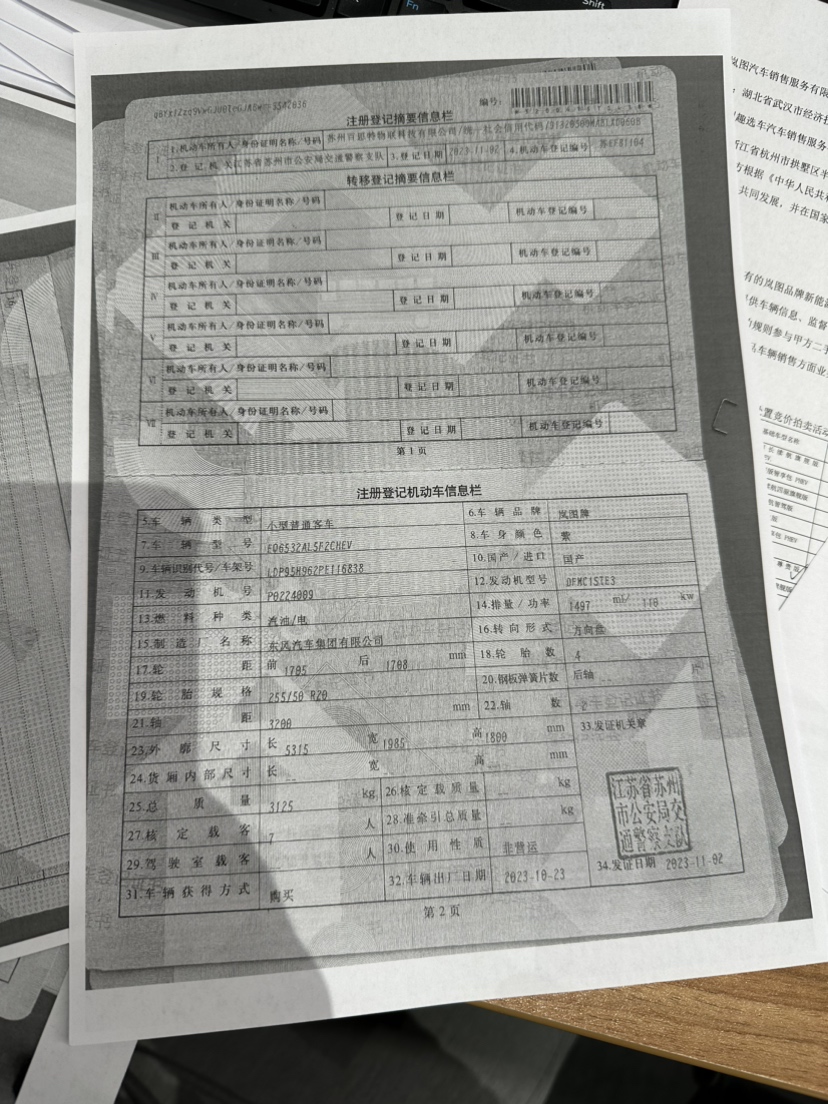 Fn
Shift
编号:
注册登记摘要信息栏
I
1.机动车所有人/身份证明名称/号码 苏州百思特物联科技有限公司/统一社会信用代码/
2.登记机关 江苏省苏州市公安局交通警察支队 3.登记日期 2023-11-02 4.机动车登记编号
转移登记摘要信息栏
II
机动车所有人/身份证明名称/号码
登记机关 登记日期 机动车登记编号
III
机动车所有人/身份证明名称/号码
登记机关 登记日期 机动车登记编号
IV
机动车所有人/身份证明名称/号码
登记机关 登记日期 机动车登记编号
V
机动车所有人/身份证明名称/号码
登记机关 登记日期 机动车登记编号
VI
机动车所有人/身份证明名称/号码
登记机关 登记日期 机动车登记编号
VII
机动车所有人/身份证明名称/号码
登记机关 登记日期 机动车登记编号
第1页
注册登记机动车信息栏
5.车辆类型 小型普通客车 6.车辆品牌 岚图牌
7.车辆型号 EQ6532ALSF2CHEV 8.车身颜色 紫
9.车辆识别代号/车架号 LDP95H962PE116838 10.国产/进口 国产
11.发动机号 P0224009 12.发动机型号 DFMC15TE3
13.燃料种类 汽油/电 14.排量/功率 1497 ml/ 110 kw
15.制造厂名称 东风汽车集团有限公司 16.转向形式 方向盘
17.轮距 前 1705 后 1708 mm 18.轮胎数 4
19.轮胎规格 255/50 R20 20.钢板弹簧片数 后轴 片
21.轴距 3200 mm 22.轴数
23.外廓尺寸 长 5315 宽 1985 高 1800 mm 33.发证机关章
24.货厢内部尺寸 长 宽 高 mm
25.总质量 3125 kg 26.核定载质量 kg
27.核定载客 7 人 28.准牵引总质量 kg
29.驾驶室载客 人 30.使用性质 非营运
31.车辆获得方式 购买 32.车辆出厂日期 2023-10-23 34.发证日期 2023-11-02
江苏省苏州
市公安局交
通警察支队
第2页
岚图汽车销售服务有限
湖北省武汉市经济技
趣选车汽车销售服务
浙江省杭州市拱墅区半
方根据《中华人民共和
共同发展，并在国家
有的岚图品牌新能源
供车辆信息、监督
规则参与甲方二手
车辆销售方面业
置竞价拍卖活动